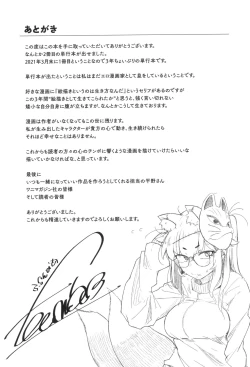 あとがき
この度はこの本を手に取っていただいてありがとうございます。
なんとか2冊目の単行本が出せました。
2021年3月末に1冊目ということなので3年ちょいぶりの単行本です。
単行本が出たということは私はまだエロ漫画家として息をしているということです。
好きな漫画に「「絵描きという
のは生き方なんだ」」というセリフがあるのですが
この3年間“絵描きとして生きてこられたか”と思うと、強く言い切れない
矮小な自分自身に腹が立ちますが、なんとかこうして生きております。
漫画は作者がいなくなってもこの世に残ります。
私が生み出したキャラクターが貴方の心で動き、生き続けられたら
それほど幸せなことはありません。
これからも読者の方々の心のチンポに響くような漫画を描けていけたらいいな
描いていかなければなと思います。
最後に
いつも一緒になっていい作品を作ろうとしてくれる担当の平野さん
ワニマガジン社の皆様
そして読者の皆様
ありがとうございました。
これからも精進していきますのでよろしくお願いします。